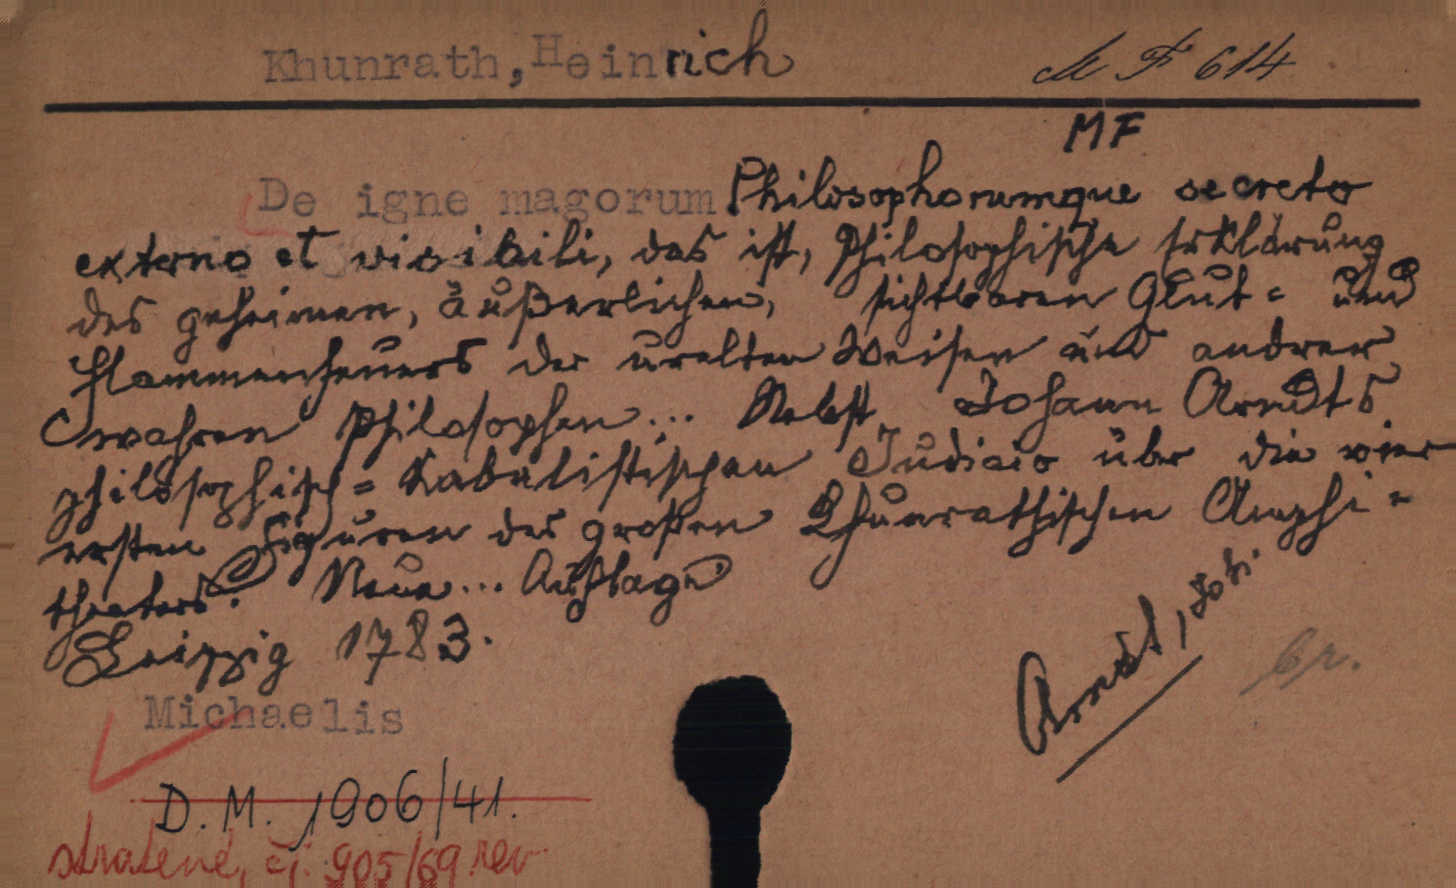 Khunrath, Heinrich
M F 614
MF
De igne magorum Philosophorumque secreto
externo et visibili, das ist, Philosophische Erklärung
des geheimen, äußerlichen, sichtbaren Glut= und
Flammenfeuers der uralten Weisen und andrer
wahren Philosophen... Nebst Johann Arndts
philosophisch=kabalistischen Judicio über die vier
ersten Figuren des großen Khunrathischen Amphi=
theaters. Neue... Auflage
Leipzig 1783.
Arndt, Joh.
br.
Michaelis
D. M. 1906/41.
stratené, čj. 905/69 rev